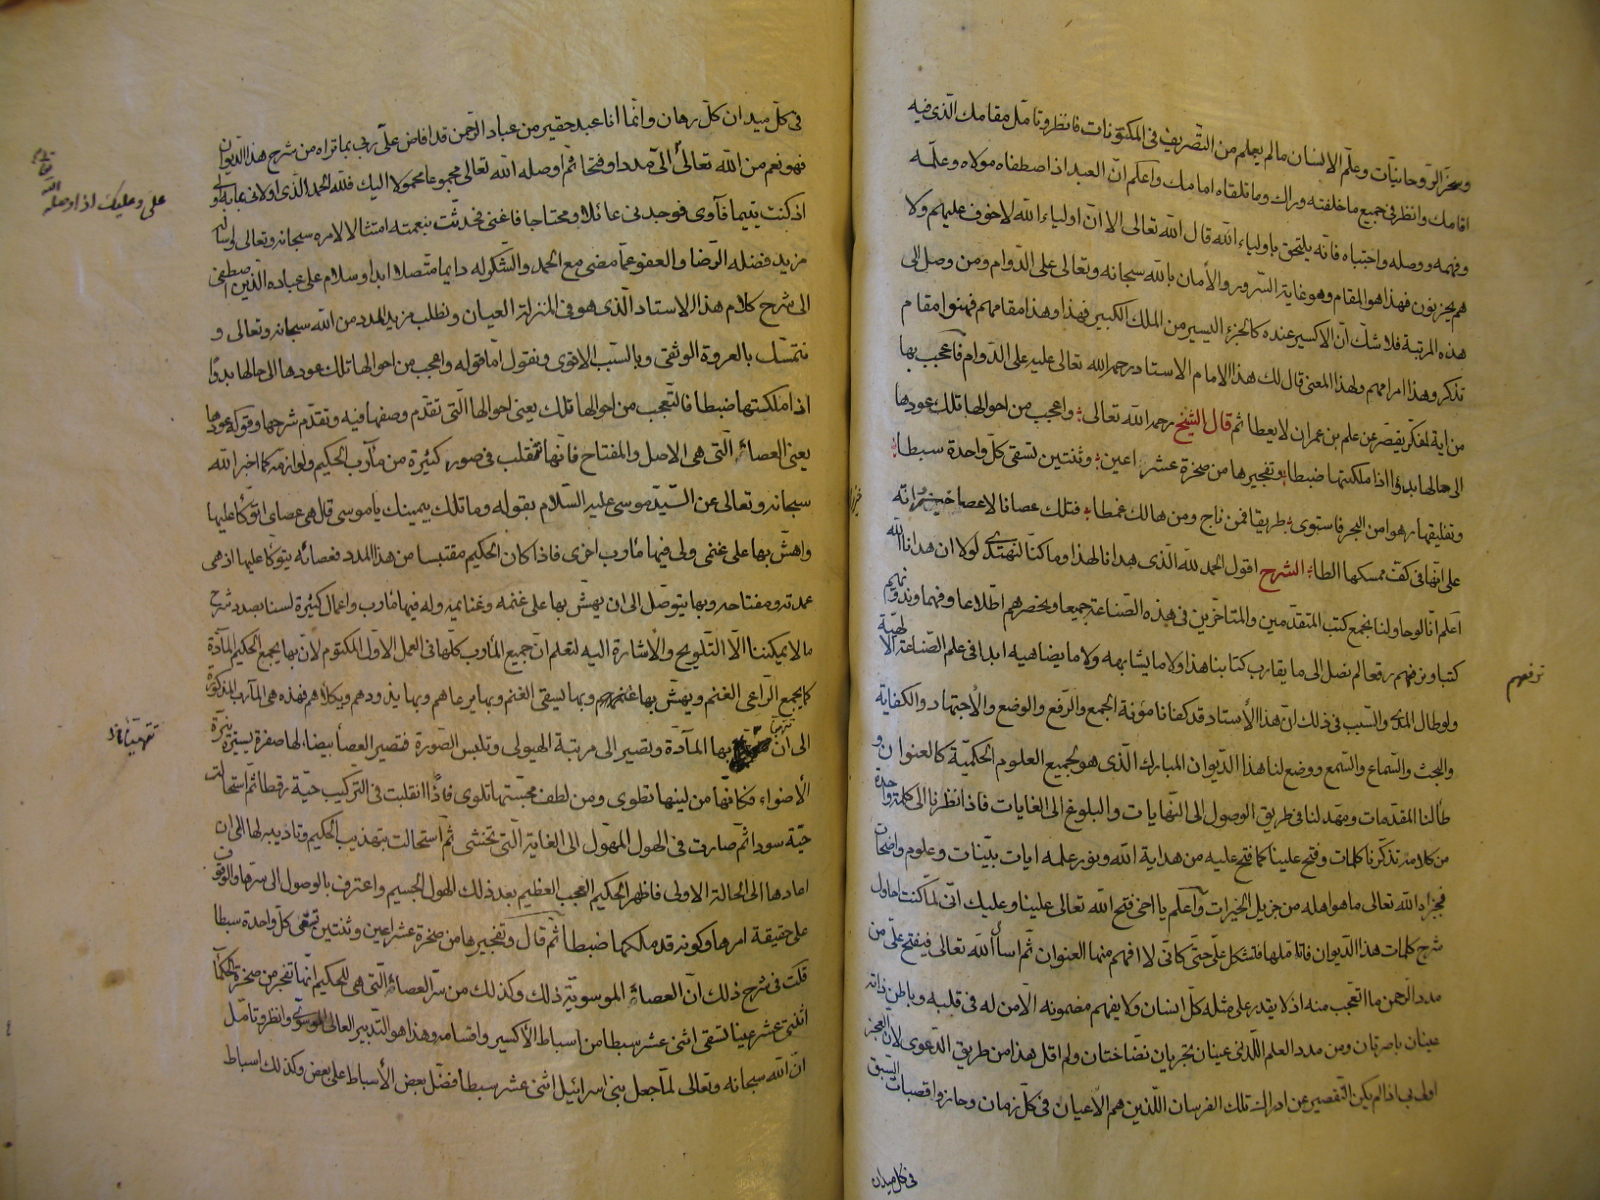 وسخر الروحانيّات وعلّم الانسان مالم يعلم من التّصريف فى المكنونات فانظر وتامّل مقامك الّذى فيه
اقامك وانظر فى جميع ما خلفته وراك وما تلقاه امامك واعلم انّ العبد اذا اصطفاه مولاه وعلّمه
وفهمه ووصله واجتباه فانّه يلتحق باولياء الله قال الله تعالى الا انّ اولياء الله لا خوف عليهم ولا
هم يحزنون فهذا هو المقام وهو غاية السّرور والأمان بالله سبحانه وتعالى على الدّوام ومن وصل الى
هذه المرتبة فلا شكّ انّ الاكسير عنده كالجزء اليسير من الملك الكبير فهذا وهذا مقامهم فهنوا مقام
تذكر وهذا امرامهم ولهذا المعنى قال لك هذا الامام الاستاد رحمه الله تعالى عليه على الدّوام فاعجب بها
من اية لمفكّر يقصر عن علم بن عمران لا يعطا ثم قال الشيخ رحمه الله تعالى واعجب من احوالها تلك عودها
الى حالها بدوا اذا ملكتها ضبطا وتفجيرها من صخرة عشر اعين وثنتين تسقى كلّ واحدة سبطا
وتفليقها رهوا من البحر فاستوى طريقا فمن ناج ومن هالك غمطا فتلك عصانا لا عصا خيزرانه
على انّها فى كفّ ممسكها الطا الشرح اقول الحمد لله الّذى هدانا لهذا وما كنّا لنهتدى لولا ان هدانا الله
اعلم انّا لو حاولنا بجمع كتب المتقدّمين والمتاخّرين فى هذه الصّناعة جميعا وبحضرهم اطلاعا وفهما وندو نهم
كتبا وبزفهم رقعا لم نصل الى ما يقارب كتابنا هذا ولا ما يشابهه ولا ما يضاهيه ابدا فى علم الصّناعة الالهيّة
ولو طال المدى والسّبب فى ذلك انّ هذا الأستاد قد كفانا مؤنة الجمع والرّفع والوضع والأجتهاد والكفاية
والبحث والسّماع والسّمع ووضع لنا هذا الدّيوان المبارك الّذى هو لجميع العلوم الحكميّة كالعنوان و
طالنا المقدّمات ومهّد لنا فى طريق الوصول الى النّهايات والبلوغ الى الغايات فاذا نظرنا الى كلمة واحدة
من كلامه تذكّرنا كلمات وفتح علينا كما فتح عليه من هداية الله وبنور علمه ايات بيّنات وعلوم واضحات
فجزاه الله تعالى ما هو اهله من جزيل الخيرات واعلم يا اخى فتح الله تعالى علينا وعليك انّى لمّا كنت احاول
شرح كلمات هذا الدّيوان فاتامّلها فتشكل علىّ حتّى كانّى لا افهم منها العنوان ثم اسأل الله تعالى فيفتح علىّ من
مدد الرّحمن ما اتعجب منه اذ لا يقدر على مثله كلّ انسان ولا يفهم مضمونه الّا من له فى قلبه وباطن ذاته
عينان باصرتان ومن مدد العلم اللّدنى عينان تجريان نضّاختان ولم اقل هذا من طريق الدّعوى لانّ العجز
اولى بى اذا لم يكن التّقصير عن ادراك تلك الفرسان الّذين هم الأعيان فى كلّ زمان وحازوا قصبات السّبق
ترفعهم
فى كل ميدان
فى كلّ ميدان كلّ رهان وانّما انا عبد حقير من عباد الرّحمن قد افاض علىّ ربّى بما تراه من شرح هذا الدّيوان
فهو نعم من الله تعالى الىّ مددا وفتحا ثم اوصله الله تعالى مجموعا محمولا اليك فللّه الحمد الّذى اولانى
اذ كنت يتيما فآوى فوجدنى عائلا ومحتاجا فاغنى فحدّثت بنعمته امتثالا لامره سبحانه وتعالى
مزيد فضله الرّضا والعفو عمّا مضى مع الحمد والشّكر له دايما متّصلا ابدا وسلام على عباده الّذين اصطفى
الى شرح كلام هذا الاستاد الّذى هو فى المنزلة العيان ونطلب مزيد المدد من الله سبحانه وتعالى و
نتمسّك بالعروة الوثقى وبالسّبب الاقوى ونقول امّا قوله واعجب من احوالها تلك عودها الى حالها بدوًا
اذا ملكتها ضبطا فالتّعجب من احوالها تلك يعنى احوالها الّتى تقدّم وصفها فيه وتقدّم شرحها وقوله عودها
يعنى العصاء الّتى هى الاصل والمفتاح فانّها تنقلب فى صور كثيرة من مآرب الحكيم ولوازمه كما اخبر الله
سبحانه وتعالى عن السّيد موسى عليه السّلام بقوله وما تلك بيمينك يا موسى قال هى عصاى اتوكّا عليها
واهشّ بها على غنمى ولى فيها مآرب اخرى فاذا كان الحكيم مقتبسا من هذا المدد فعصائه يتوكّا عليها اذ هى
عمدته ومفتاحه وبها يتوصل الى ان يهشّ بها على غنمه وغنايمه وله فيها مآرب واعمال كثيرة لسنا بصدد شرح
ما لا يمكننا الّا التّلويح والأشارة اليه لتعلم انّ جميع المآرب كلّها فى العمل الاوّل المكتوم لانّ بها يجمع الحكيم المآدّة
كما يجمع الرّاعى الغنم ويهشّ بها غنمه وبها يسقى الغنم وبها يرعاهم وبها يذودهم ويكلأهم فهذه هى المآرب المذكورة
الى ان بها المآدّة وتصير الى مرتبة الهيولى وتلبس الصّورة فتصير العصا بيضا لها صفرة يسيرة نيّرة
الأضواء فكانّها من لينها تطوى ومن لطف مجسّتها تلوى فاذا انقلبت فى التّركيب حيّة رقطا ثم استحالت
حيّة سودا ثم صارت فى الهول المهول الى الغاية الّتى تخشى ثم استحالت بتهذيب الحكيم وتاديبه لها الى ان
اعادها الى الحالة الاولى فاظهر الحكيم العجب العظيم بعد ذلك الهول الجسيم واعترف بالوصول الى سرّها والوقوف
على حقيقة امرها وكونه قد ملكها ضبطا ثم قال وتفجيرها من صخرة عشر اعين وثنتين تسقى كلّ واحدة سبطا
قلت فى شرح ذلك انّ العصاء الموسويّة ذلك وكذلك من سرّ العصاء الّتى هى للحكيم انّها تفجر من صخرة الحكماء
اثنتى عشر عينا تسقى اثنى عشر سبطا من اسباط الأكسير واقسامه وهذا هو التّدبير العالى الموسوى وانظر وتامّل
انّ الله سبحانه وتعالى لما جعل بنى اسرائيل اثنى عشر سبطا فضّل بعض الأسباط على بعض وكذلك اسباط
علىّ وعليك اذ اوصله الله تعالى